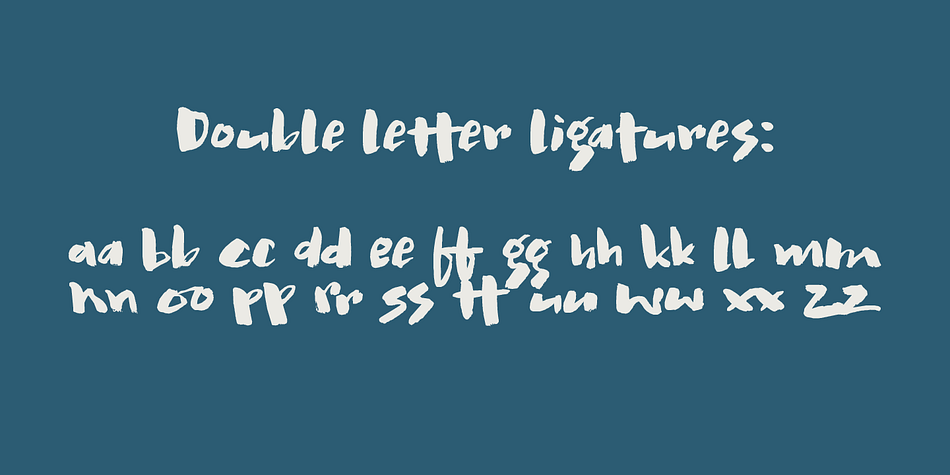 Double letter ligatures:
aa bb cc dd ee ff gg hh kk ll mm
nn oo pp rr ss tt uu ww xx zz